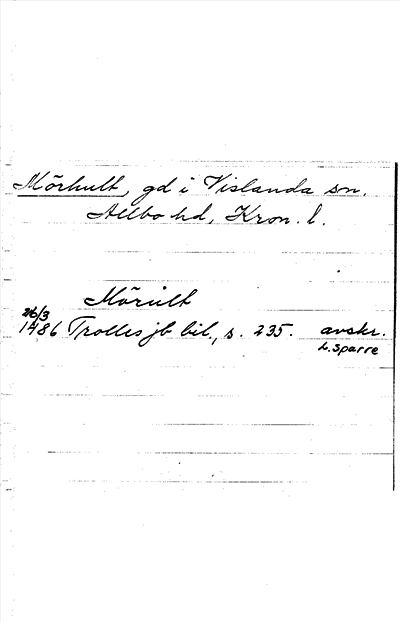 Mörhult, gd i Vislanda sn.
Allbo hd, Kron. l.
Mörult
26/3
1486 Trolles jb bil., s. 235. avskr.
L. Sparre